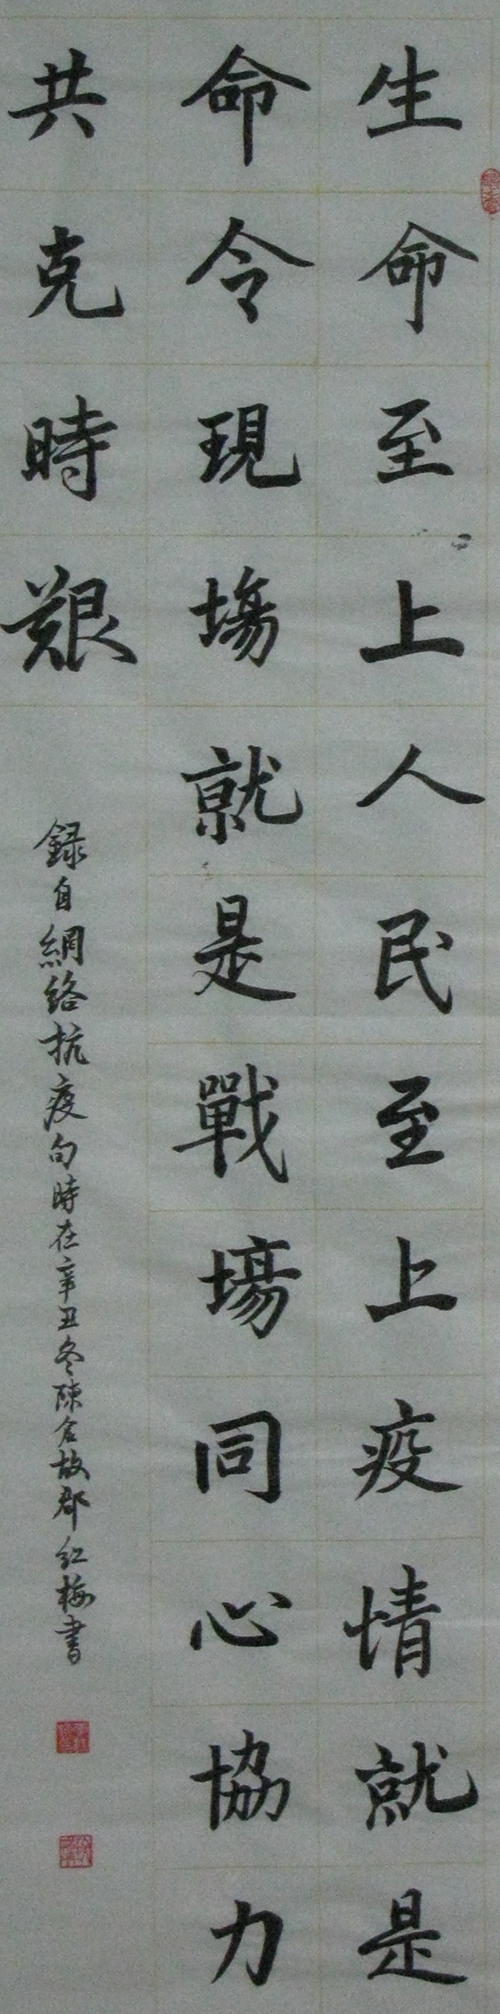 生命至上人民至上疫情就是
命令現場就是戰場同心協力
共克時艱
録自網絡抗疫句時在辛丑冬陳倉故郡紅梅書